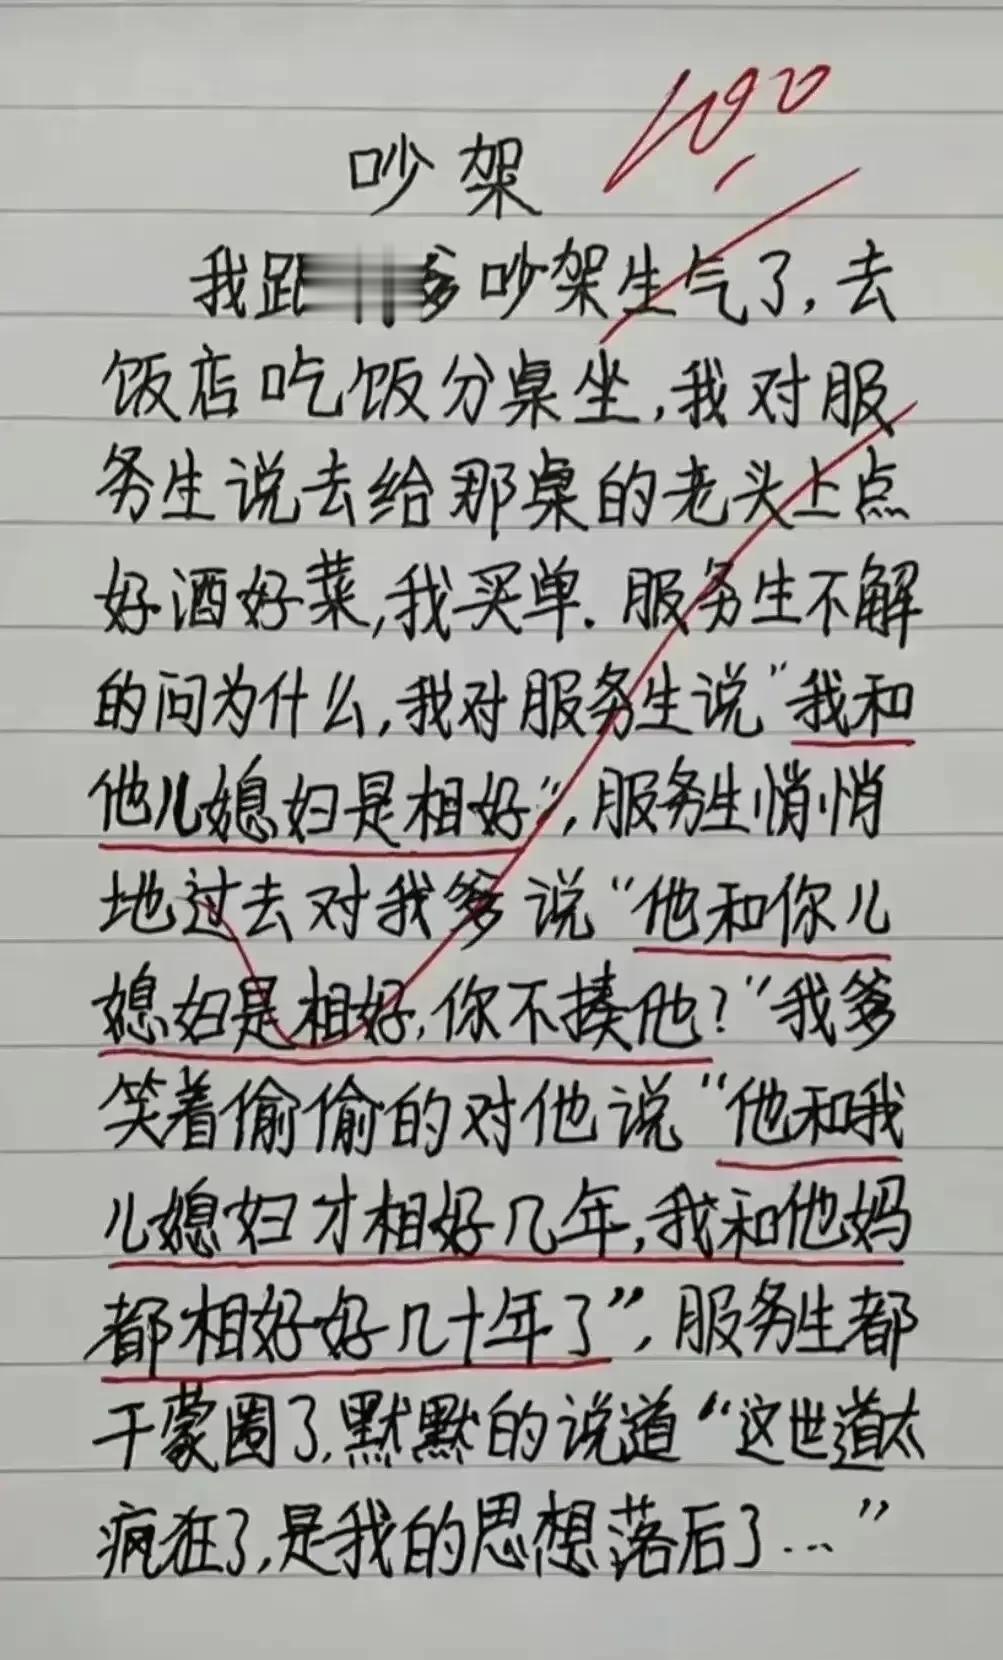 100
吵架
我跟爹吵架生气了,去
饭店吃饭分桌坐,我对服
务生说去给那桌的老头上点
好酒好菜,我买单.服务生不解
的问为什么,我对服务生说"我和
他儿媳妇是相好",服务生悄悄
地过去对我爹说"他和你儿
媳妇是相好,你不揍他?"我爹
笑着偷偷的对他说"他和我
儿媳妇才相好几年,我和他妈
都相好好几十年了",服务生都
干蒙圈了,默默的说道"这世道太
疯狂了,是我的思想落后了..."